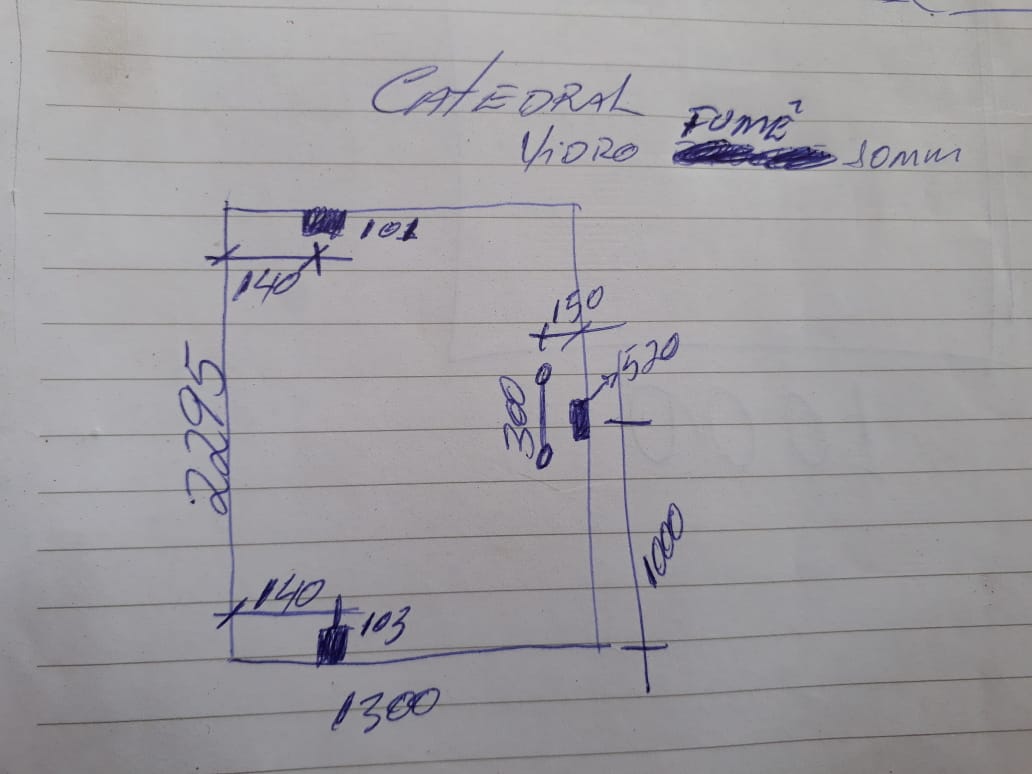 CATEDRAL
FUMÊ
VIDRO 10mm
101
140
150
520
300
2295
1000
140
103
1300